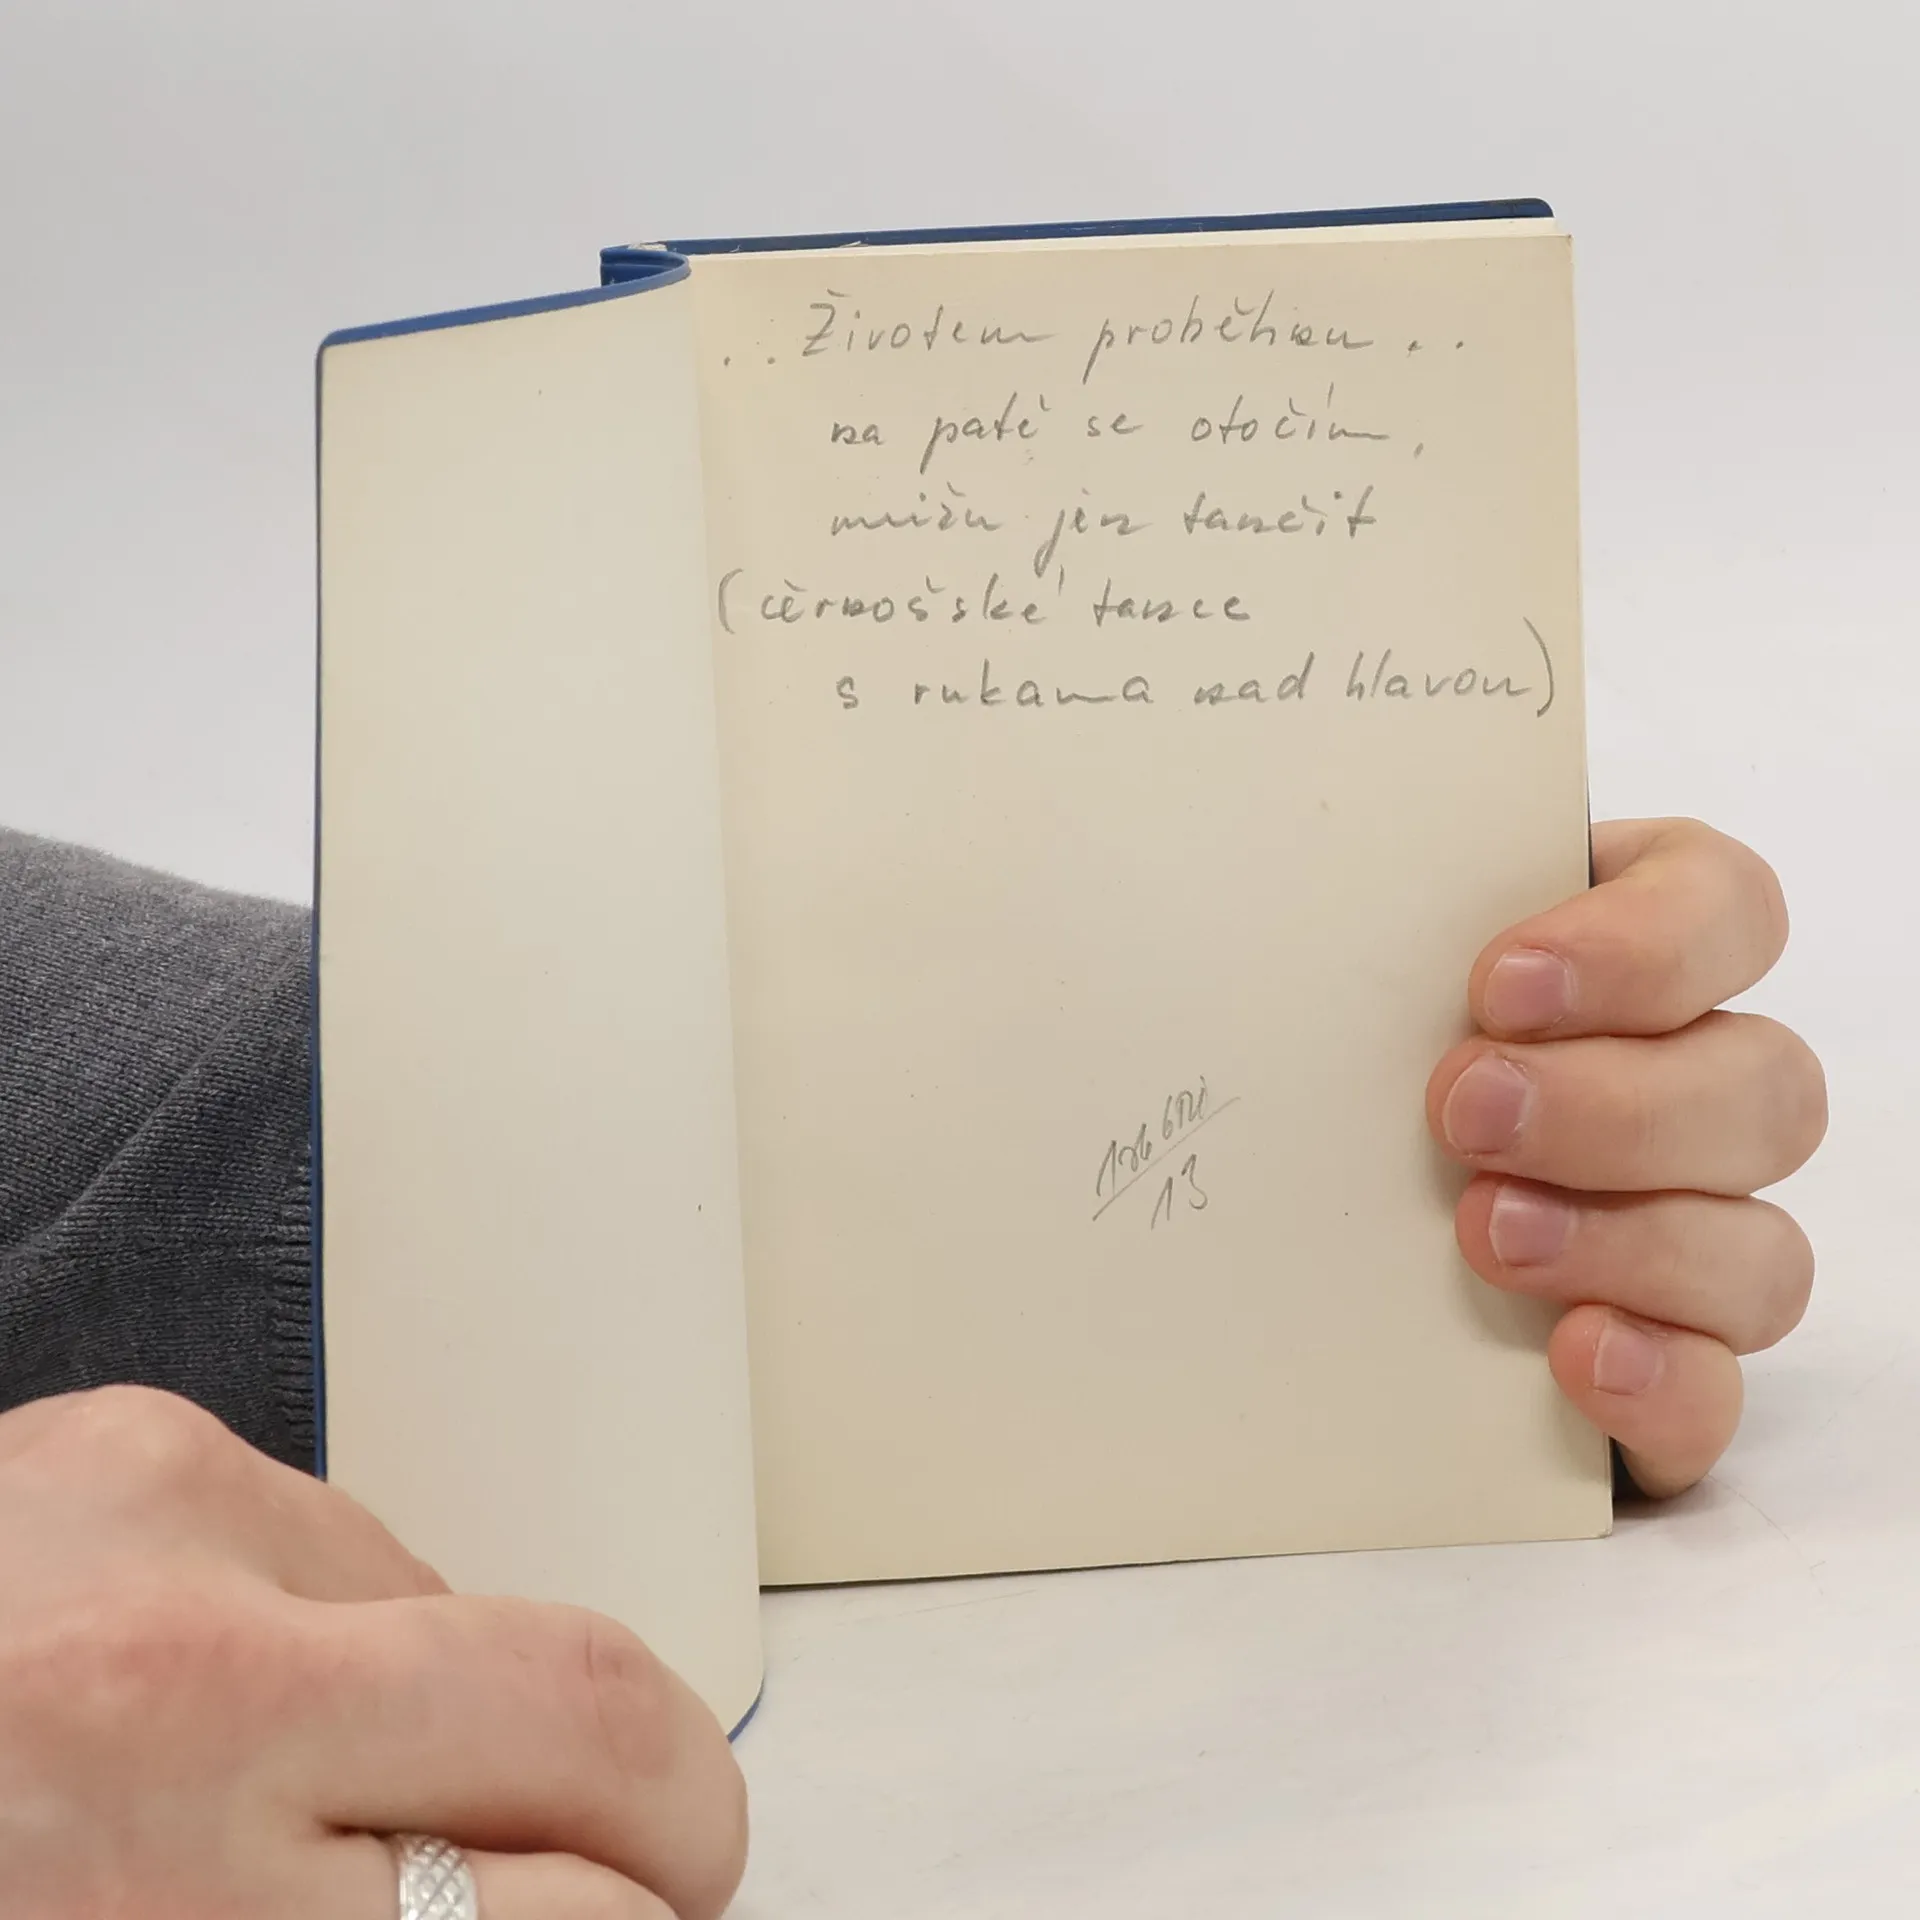 .. Životem proběhnu ..
na patě se otočím,
můžu jen tančit
(černošské tance
s rukama nad hlavou)
13